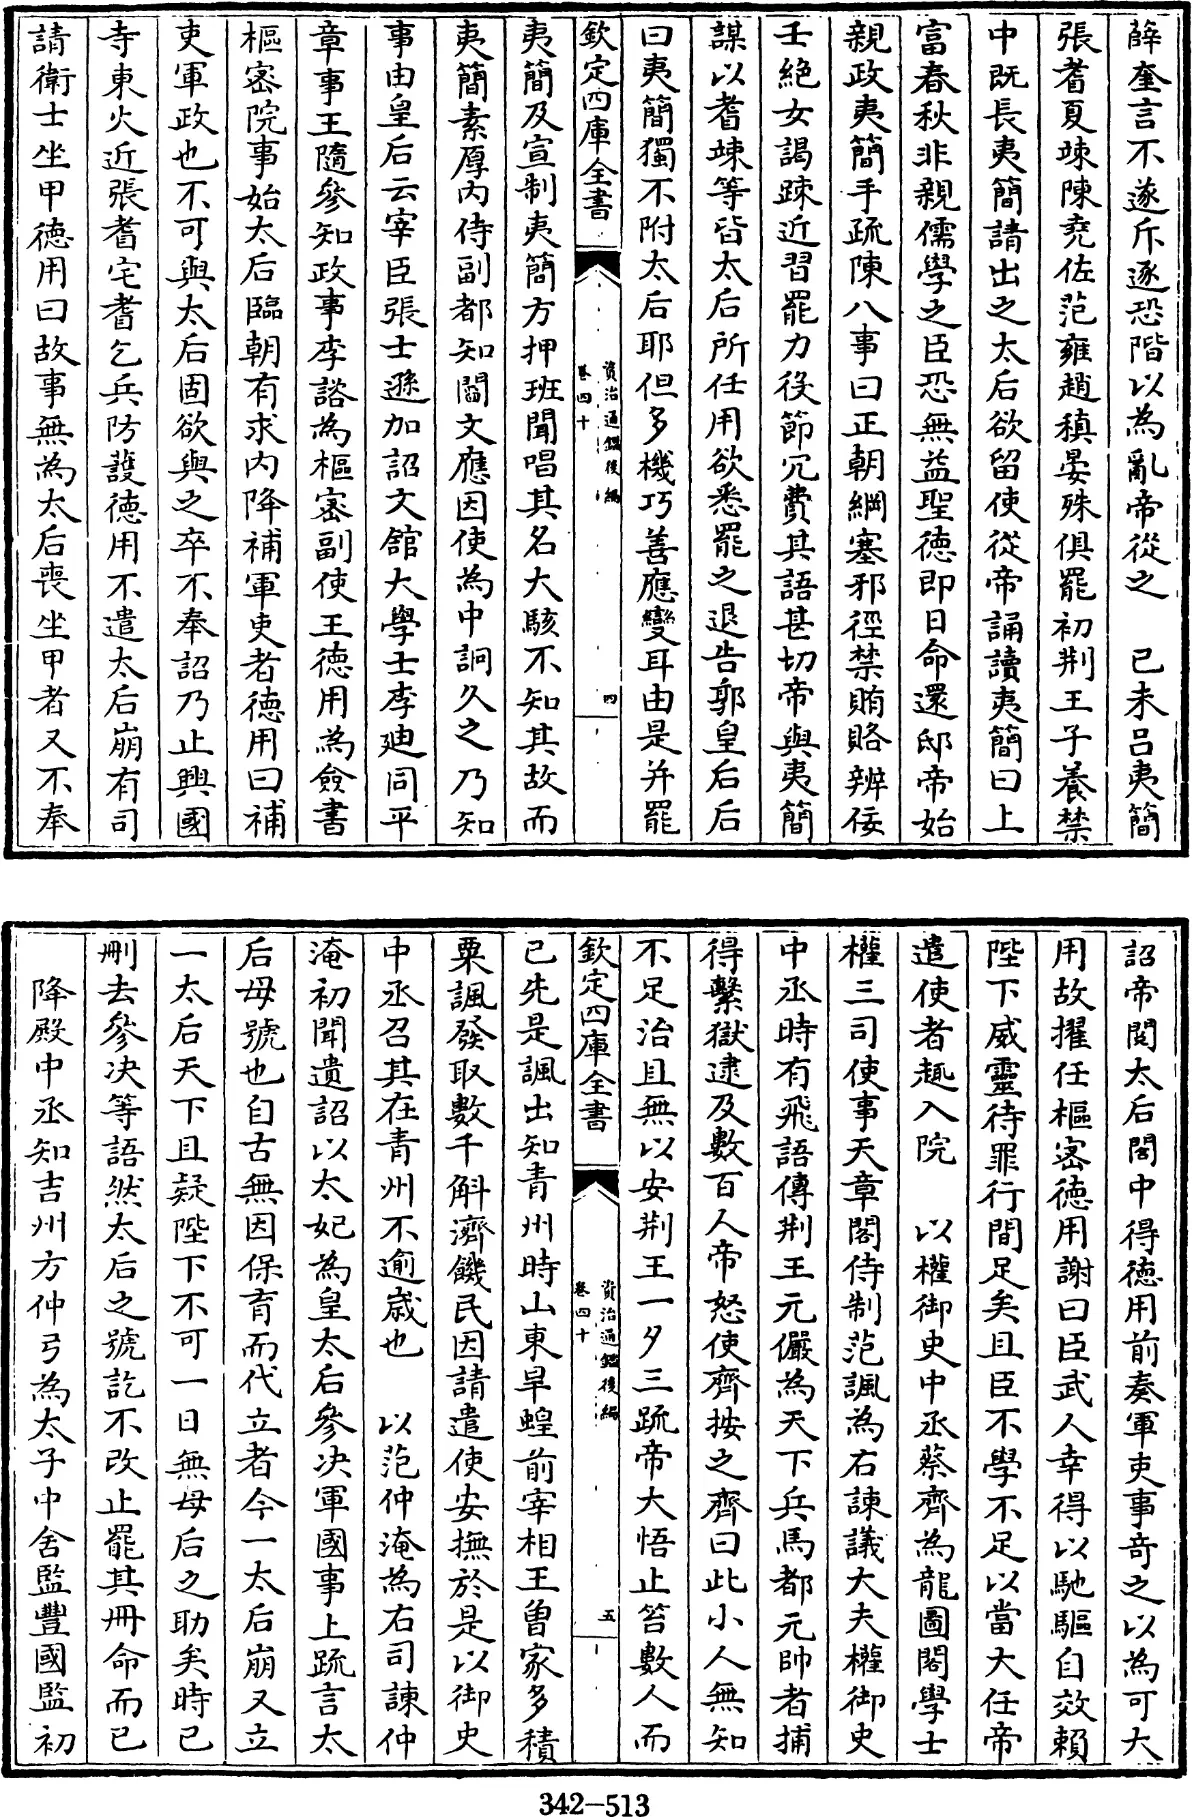 薛奎言不遂斥逐恐階以為亂帝從之　己未吕夷簡
張耆夏竦陳堯佐范雍趙稹晏殊俱罷初荆王子養禁
中既長夷簡請出之太后欲留使從帝誦讀夷簡曰上
富春秋非親儒學之臣恐無益聖德即日命還邸帝始
親政夷簡手疏陳八事曰正朝綱塞邪徑禁賄賂辨佞
壬絶女謁踈近習罷力役節冗費其語甚切帝與夷簡
謀以耆竦等皆太后所任用欲悉罷之退告郭皇后后
曰夷簡獨不附太后耶但多機巧善應變耳由是并罷
欽定四庫全書　資治通鑑後編　卷四十　四
夷簡及宣制夷簡方押班聞唱其名大駭不知其故而
夷簡素厚内侍副都知閻文應因使為中詗久之乃知
事由皇后云宰臣張士遜加詔文館大學士李廸同平
章事王隨參知政事李諮為樞密副使王德用為僉書
樞密院事始太后臨朝有求内降補軍吏者德用曰補
吏軍政也不可與太后固欲與之卒不奉詔乃止興國
寺東火近張耆宅耆乞兵防護德用不遣太后崩有司
請衛士坐甲德用曰故事無為太后喪坐甲者又不奉
詔帝閲太后閤中得德用前奏軍吏事奇之以為可大
用故擢任樞密德用謝曰臣武人幸得以馳驅自效賴
陛下威靈待罪行間足矣且臣不學不足以當大任帝
遣使者趣入院　以權御史中丞蔡齊為龍圖閣學士
權三司使事天章閣侍制范諷為右諫議大夫權御史
中丞時有飛語傳荆王元儼為天下兵馬都元帥者捕
得繫獄逮及數百人帝怒使齊按之齊曰此小人無知
不足治且無以安荆王一夕三疏帝大悟止笞數人而
欽定四庫全書　資治通鑑後編　卷四十　五
已先是諷出知青州時山東旱蝗前宰相王曾家多積
粟諷發取數千斛濟饑民因請遣使安撫於是以御史
中丞召其在青州不逾歲也　以范仲淹為右司諫仲
淹初聞遺詔以太妃為皇太后參决軍國事上疏言太
后母號也自古無因保育而代立者今一太后崩又立
一太后天下且疑陛下不可一日無母后之助矣時已
刪去參决等語然太后之號訖不改止罷其冊命而已
降殿中丞知吉州方仲弓為太子中舍監豐國監初
342-513